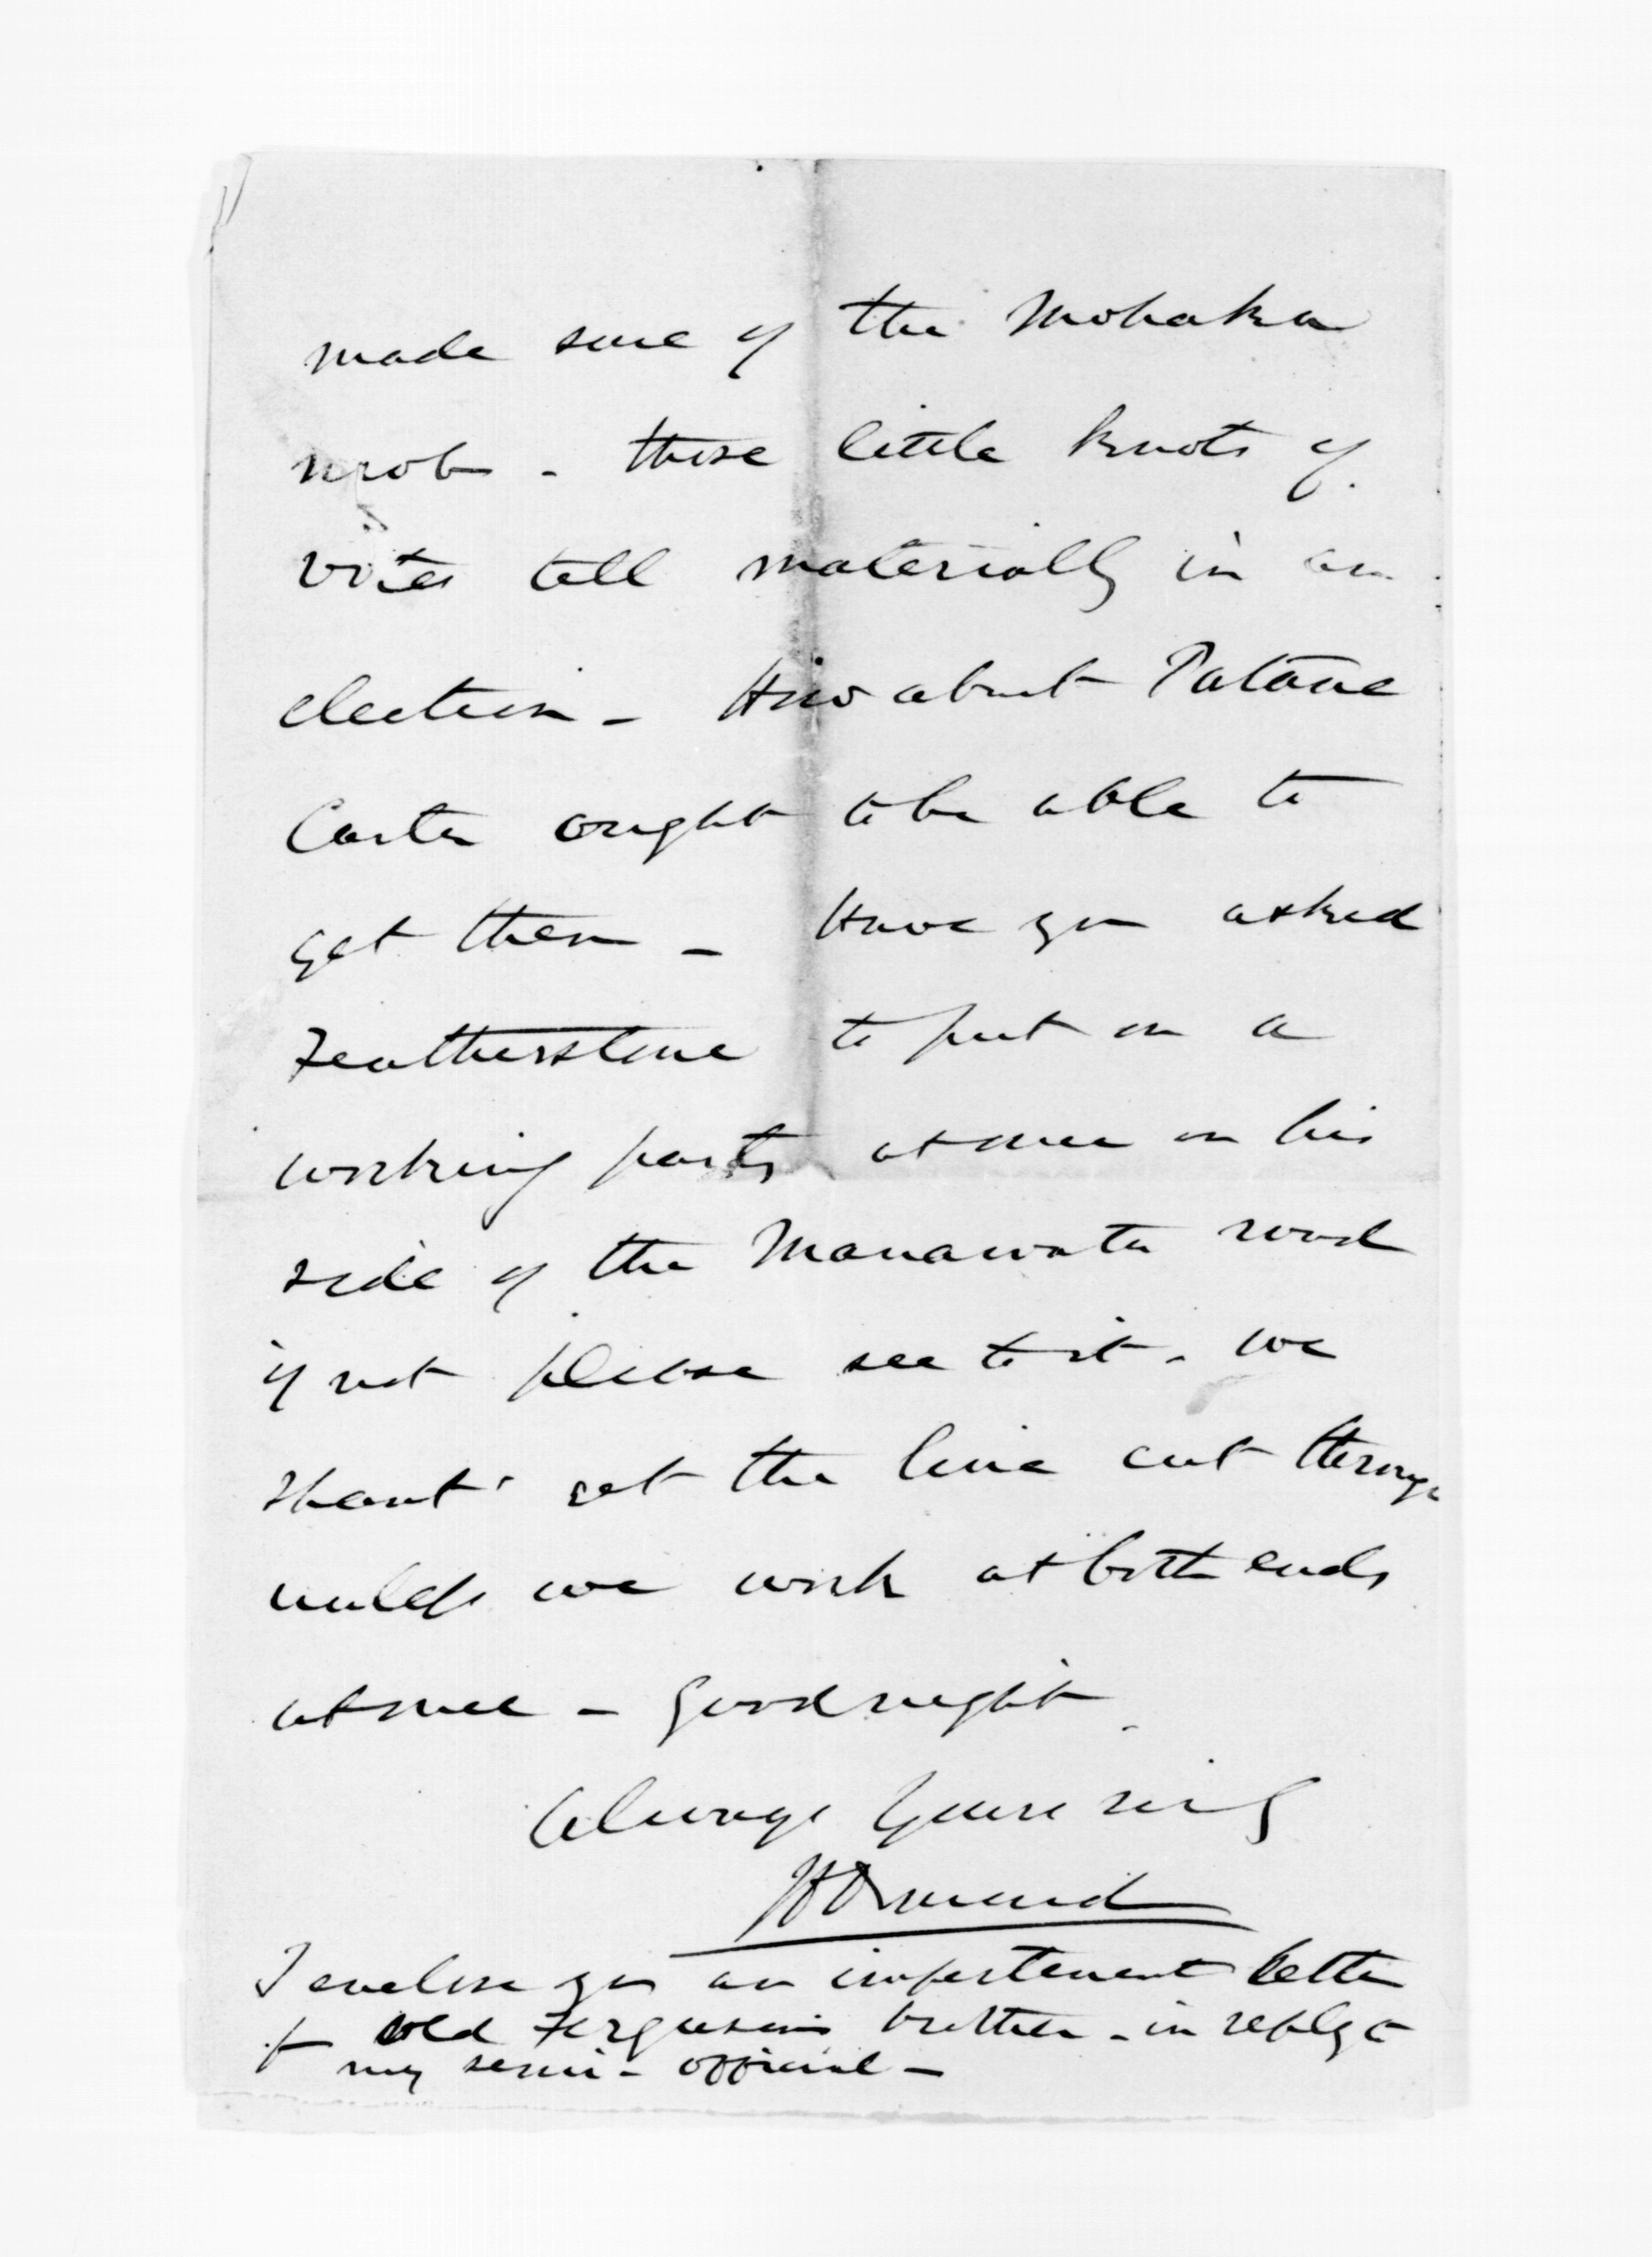 made sure of the Mohaka
mob - those little knots of
votes tell materially in an
election - How about Patane
Carter ought to be able to
get them - Have you asked
Featherstone to put on a
working party at once on his
side of the Manawatu road
if not please see to it - we
shant get the line cut through
unless we work at both ends
at once - Good night.
Always Yours sincy
JDOrmond
I enclose you an impertinent letter
of old Fergusons brother - in reply to
my semi-official -